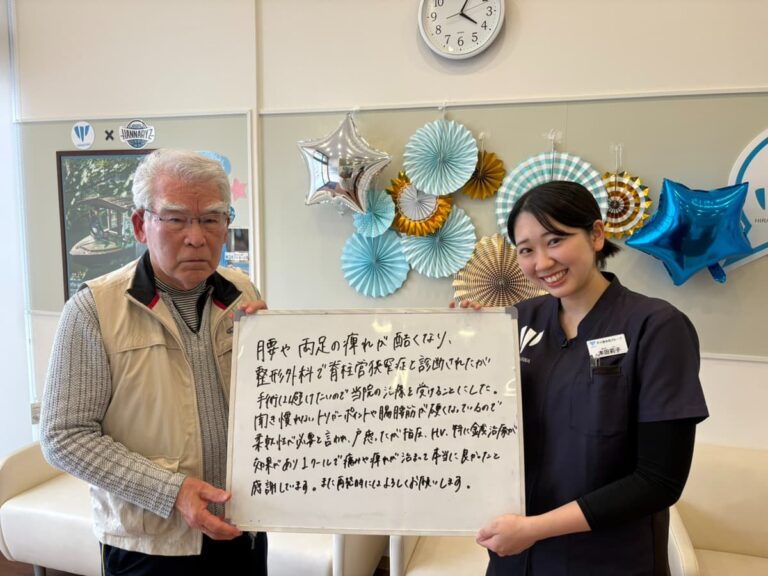 HANNARYZ
12
1
2
3
4
5
6
7
8
9
10
11
HIRA
腰や両足の痺れが酷くなり、
整形外科で脊柱管狭窄症と診断されたが
手術は避けたいので当院の治療を受けることにした。
聞き慣れないトリガーポイントや腸腰筋が硬くなっているので
柔軟性が必要と言われ、戸惑ったが指圧、HV、特に鍼治療が
効果があり1クールで痛みや痺れが治まって本当に良かったと
感謝しています。また再発時にはよろしくお願いします。